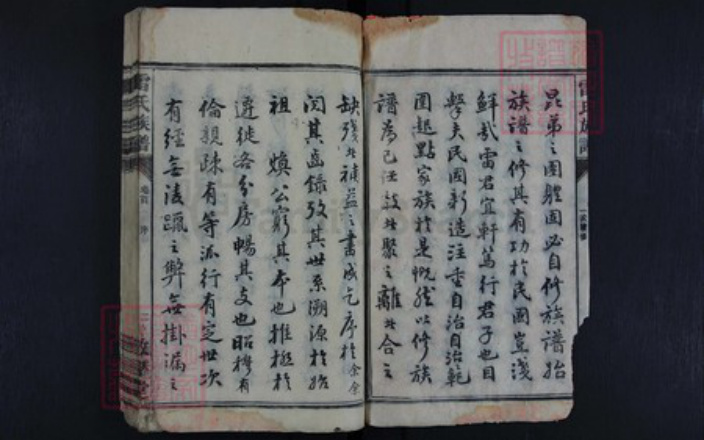 昆弟之團體固必自修族譜始
族譜之修其有功於民國豈淺
鮮哉雷君宜軒篤行君子也目
擊夫民國新造注重自治自治範
圍起點家族於是慨然以修族
譜為己任散者聚之離者合之
缺殘者補益之書成乞序於余余
閱其齒錄攷其世系溯源於始
祖 煥公窮其本也推極於
遷徙各分房暢其支也昭穆有
倫親疎有等派行有定世次
有經無淩躐之弊無掛漏之
雷氏族譜
卷首 序